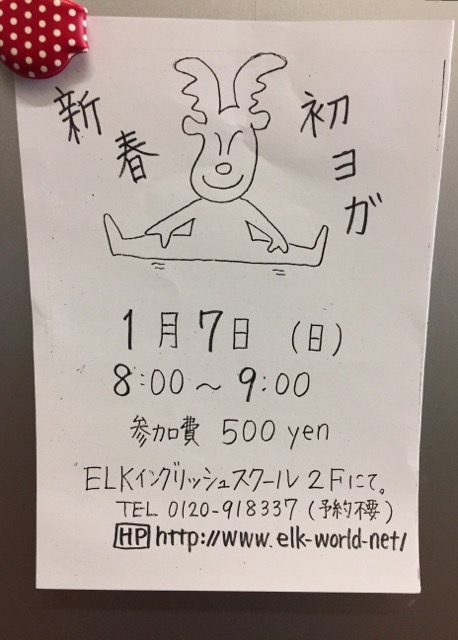 新春
初ヨガ
1月7日 (日)
8:00～9:00
参加費 500 yen
ELKイングリッシュスクール 2Fにて。
TEL 0120-918337 (予約不要)
HP http://www.elk-world-net/